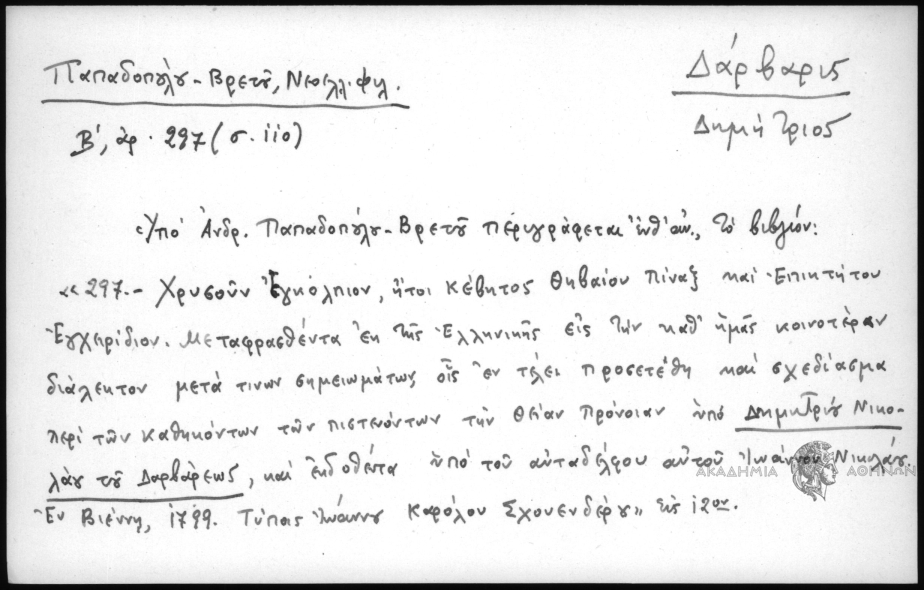 Παπαδοπούλου-Βρετοῦ, Νεοελλ. φιλ.
Β', ἀρ. 297 (σ. 110)
Δάρβαρις
Δημήτριος
Ὑπὸ Ἀνδρ. Παπαδοπούλου-Βρετοῦ περιγράφεται ἔνθ' ἀν., τὸ βιβλίον:
«297.- Χρυσοῦν Ἐγκόλπιον, ἤτοι Κέβητος Θηβαίου Πίναξ καὶ Ἐπικτήτου
Ἐγχειρίδιον. Μεταφρασθέντα ἐκ τῆς Ἑλληνικῆς εἰς τὴν καθ' ἡμᾶς κοινοτέραν
διάλεκτον μετά τινων σημειωμάτων, οἷς ἐν τέλει προσετέθη καὶ σχεδίασμα
περὶ τῶν καθηκόντων τῶν πιστευόντων τὴν θείαν Πρόνοιαν ὑπὸ Δημητρίου Νικο-
λάου τοῦ Δαρβάρεως, καὶ ἐκδοθέντα ὑπὸ τοῦ αὐταδέλφου αὐτοῦ Ἰωάννου Νικολάου.
Ἐν Βιέννῃ, 1799. Τύποις Ἰωάννου Καρόλου Σχουενδέρου» εἰς 12ον.
ΑΚΑΔΗΜΙΑ ΑΘΗΝΩΝ